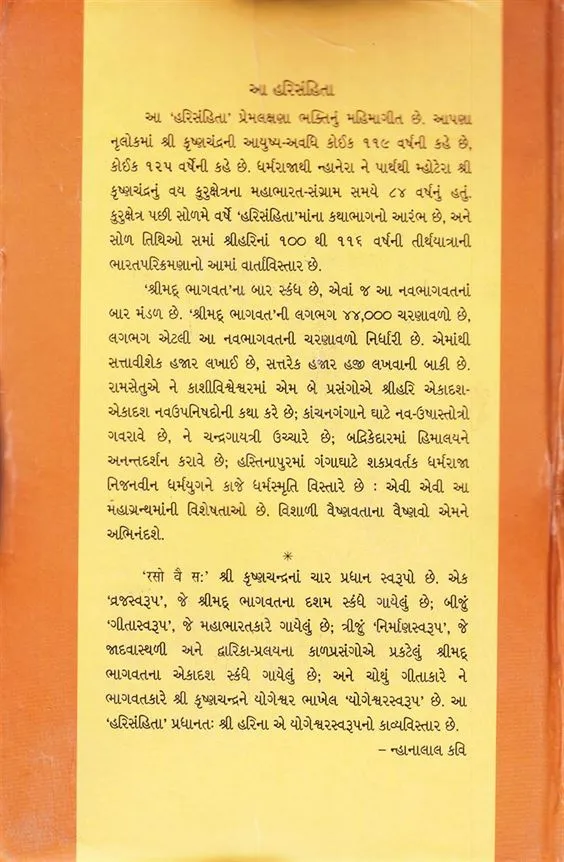 આ હરિસંહિતા
આ ‘હરિસંહિતા’ પ્રેમલક્ષણા ભક્તિનું મહિમાગીત છે. આપણા
નૃલોકમાં શ્રી કૃષ્ણચંદ્રની આયુષ્ય-અવધિ કોઈક ૧૧૯ વર્ષની કહે છે,
કોઈક ૧૨૫ વર્ષેની કહે છે. ધર્મરાજાથી ન્હાનેરા ને પાર્થથી મ્હોટેરા શ્રી
કૃષ્ણચંદ્રનું વય કુરુક્ષેત્રના મહાભારત-સંગ્રામ સમયે ૮૪ વર્ષનું હતું.
કુરુક્ષેત્ર પછી સોળમે વર્ષે ‘હરિસંહિતા’માંના કથાભાગનો આરંભ છે, અને
સોળ તિથિઓ સમાં શ્રીહરિનાં ૧૦૦ થી ૧૧૬ વર્ષની તીર્થયાત્રાની
ભારતપરિક્રમણાનો આમાં વાર્તાવિસ્તાર છે.
‘શ્રીમદ્ ભાગવત’ના બાર સ્કંધ છે, એવાં જ આ નવભાગવતનાં
બાર મંડળ છે. ‘શ્રીમદ્ ભાગવત’ની લગભગ ૪૪,૦૦૦ ચરણાવળો છે,
લગભગ એટલી આ નવભાગવતની ચરણાવળો નિર્ધારી છે. એમાંથી
સત્તાવીશેક હજાર લખાઈ છે, સત્તરેક હજાર હજી લખવાની બાકી છે.
રામસેતુએ ને કાશીવિશ્વેશ્વરમાં એમ બે પ્રસંગોએ શ્રીહરિ એકાદશ-
એકાદશ નવઉપનિષદોની કથા કરે છે; કાંચનગંગાને ઘાટે નવ-ઉષાસ્તોત્રો
ગવરાવે છે, ને ચન્દ્રગાયત્રી ઉચ્ચારે છે; બદ્રિકેદારમાં હિમાલયને
અનન્તદર્શન કરાવે છે; હસ્તિનાપુરમાં ગંગાઘાટે શકપ્રવર્તક ધર્મરાજા
નિજનવીન ધર્મયુગને કાજે ધર્મસ્મૃતિ વિસ્તારે છે : એવી એવી આ
મહાગ્રન્થમાંની વિશેષતાઓ છે. વિશાળી વૈષ્ણવતાના વૈષ્ણવો એમને
અભિનંદશે.
*
‘રસો વૈ સઃ’ શ્રી કૃષ્ણચન્દ્રનાં ચાર પ્રધાન સ્વરૂપો છે. એક
‘વ્રજસ્વરૂપ’, જે શ્રીમદ્ ભાગવતના દશમ સ્કંધે ગાયેલું છે; બીજું
‘ગીતાસ્વરૂપ’, જે મહાભારતકારે ગાયેલું છે; ત્રીજું ‘નિર્માણસ્વરૂપ’, જે
જાદવાસ્થળી અને દ્વારિકા-પ્રલયના કાળપ્રસંગોએ પ્રકટેલું શ્રીમદ્
ભાગવતના એકાદશ સ્કંધે ગાયેલું છે; અને ચોથું ગીતાકારે ને
ભાગવતકારે શ્રી કૃષ્ણચન્દ્રને યોગેશ્વર ભાખેલ ‘યોગેશ્વરસ્વરૂપ’ છે. આ
‘હરિસંહિતા’ પ્રધાનતઃ શ્રી હરિના એ યોગેશ્વરસ્વરૂપનો કાવ્યવિસ્તાર છે.
– ન્હાનાલાલ કવિ